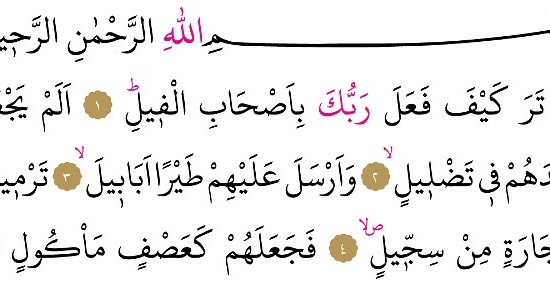 ـمِ اللّٰهِ الرَّحْمٰنِ الرَّح۪ي
تَرَ كَيْفَ فَعَلَ رَبُّكَ بِاَصْحَابِ الْف۪يلِۜ ﴿١﴾ اَلَمْ يَجْعَـ
ـدَهُمْ ف۪ي تَضْل۪يلٍۙ ﴿٢﴾ وَاَرْسَلَ عَلَيْهِمْ طَيْرًا اَبَاب۪يلَۙ ﴿٣﴾ تَرْم۪يـ
ـجَارَةٍ مِنْ سِجّ۪يلٍۖۙ ﴿٤﴾ فَجَعَلَهُمْ كَعَصْفٍ مَأْكُولٍ